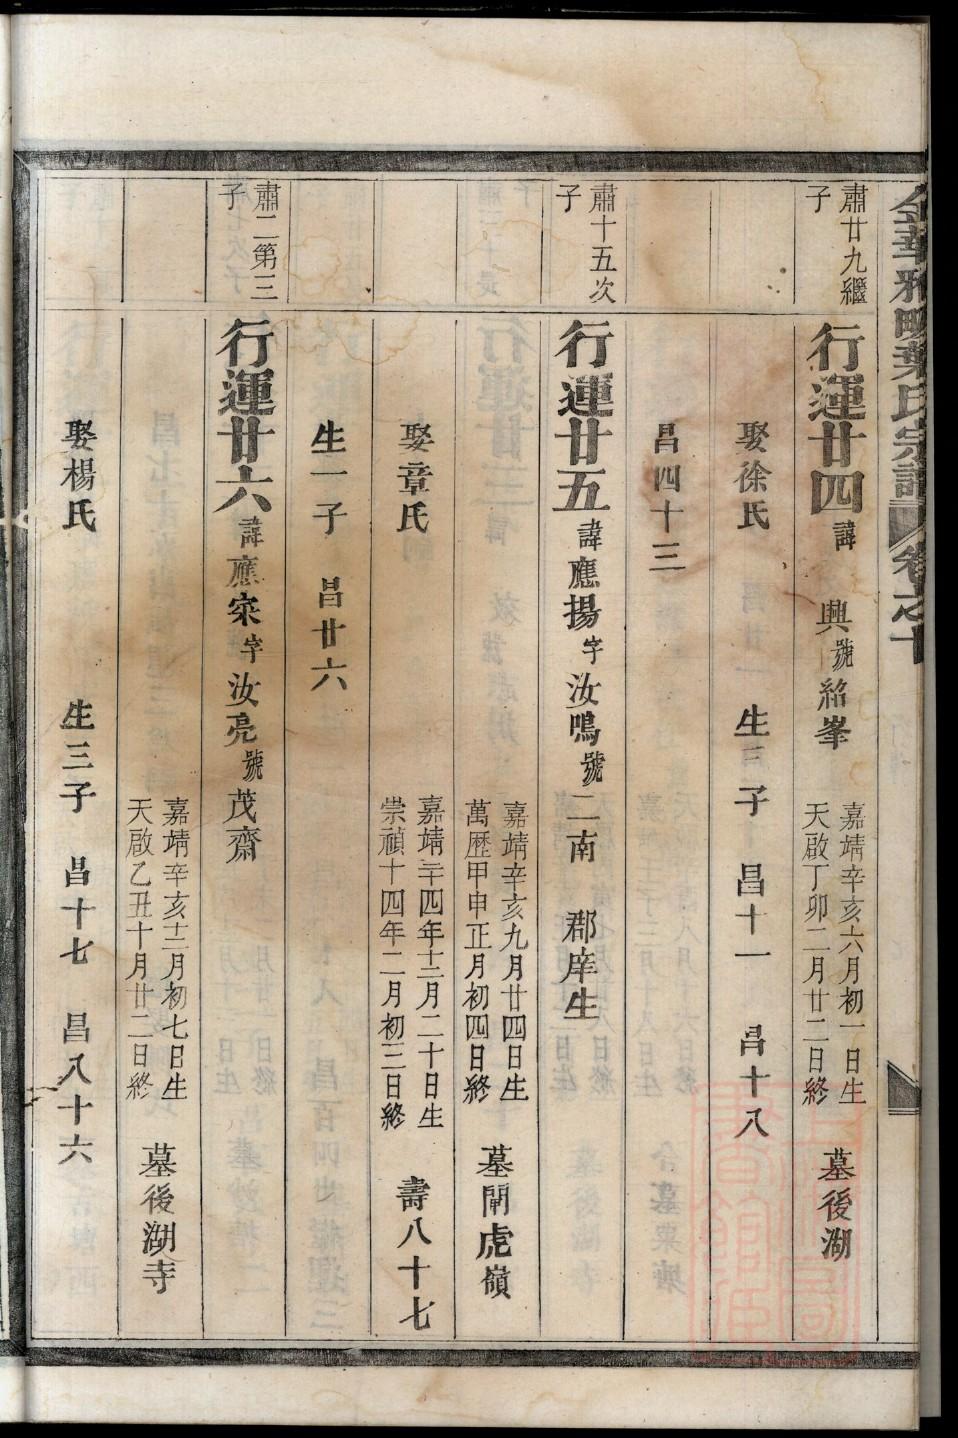 金華雅畈葉氏宗譜 卷之十
肅廿九繼子
行運廿四 諱 興 號 紹峯 嘉靖辛亥六月初一日生 天啟丁卯二月廿二日終 墓後湖
娶徐氏 生三子 昌十一 昌十八
昌四十三
肅十五次子
行運廿五 諱應揚 字汝鳴 號二南 郡庠生
嘉靖辛亥九月廿四日生 萬歷甲申正月初四日終 墓閘虎嶺
娶章氏 嘉靖三十四年十二月二十日生 崇禎十四年二月初三日終 壽八十七
生一子 昌廿六
肅二第三子
行運廿六 諱應寀 字汝亮 號茂齋
嘉靖辛亥十二月初七日生 天啟乙丑十月廿二日終 墓後湖寺
娶楊氏 生三子 昌十七 昌八十六